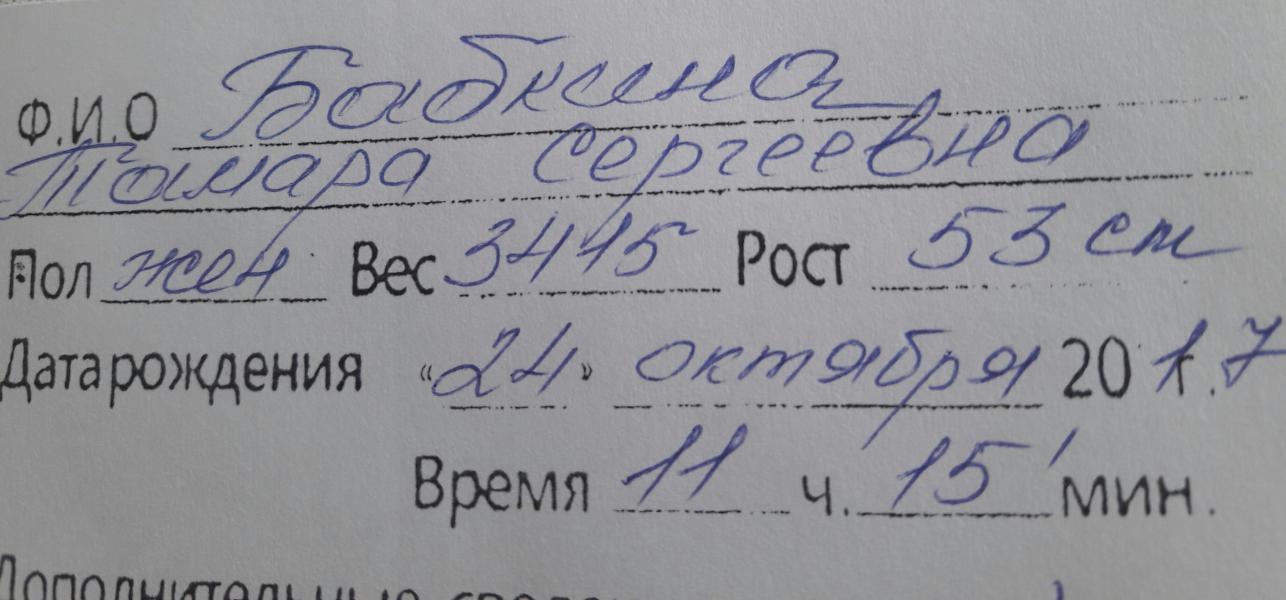 Ф.И.О Бабкина
Тамара Сергеевна
Пол жен Вес 3445 Рост 53 см
Дата рождения «24» октября 2017
Время 11 ч. 15 мин.
Дополнительные